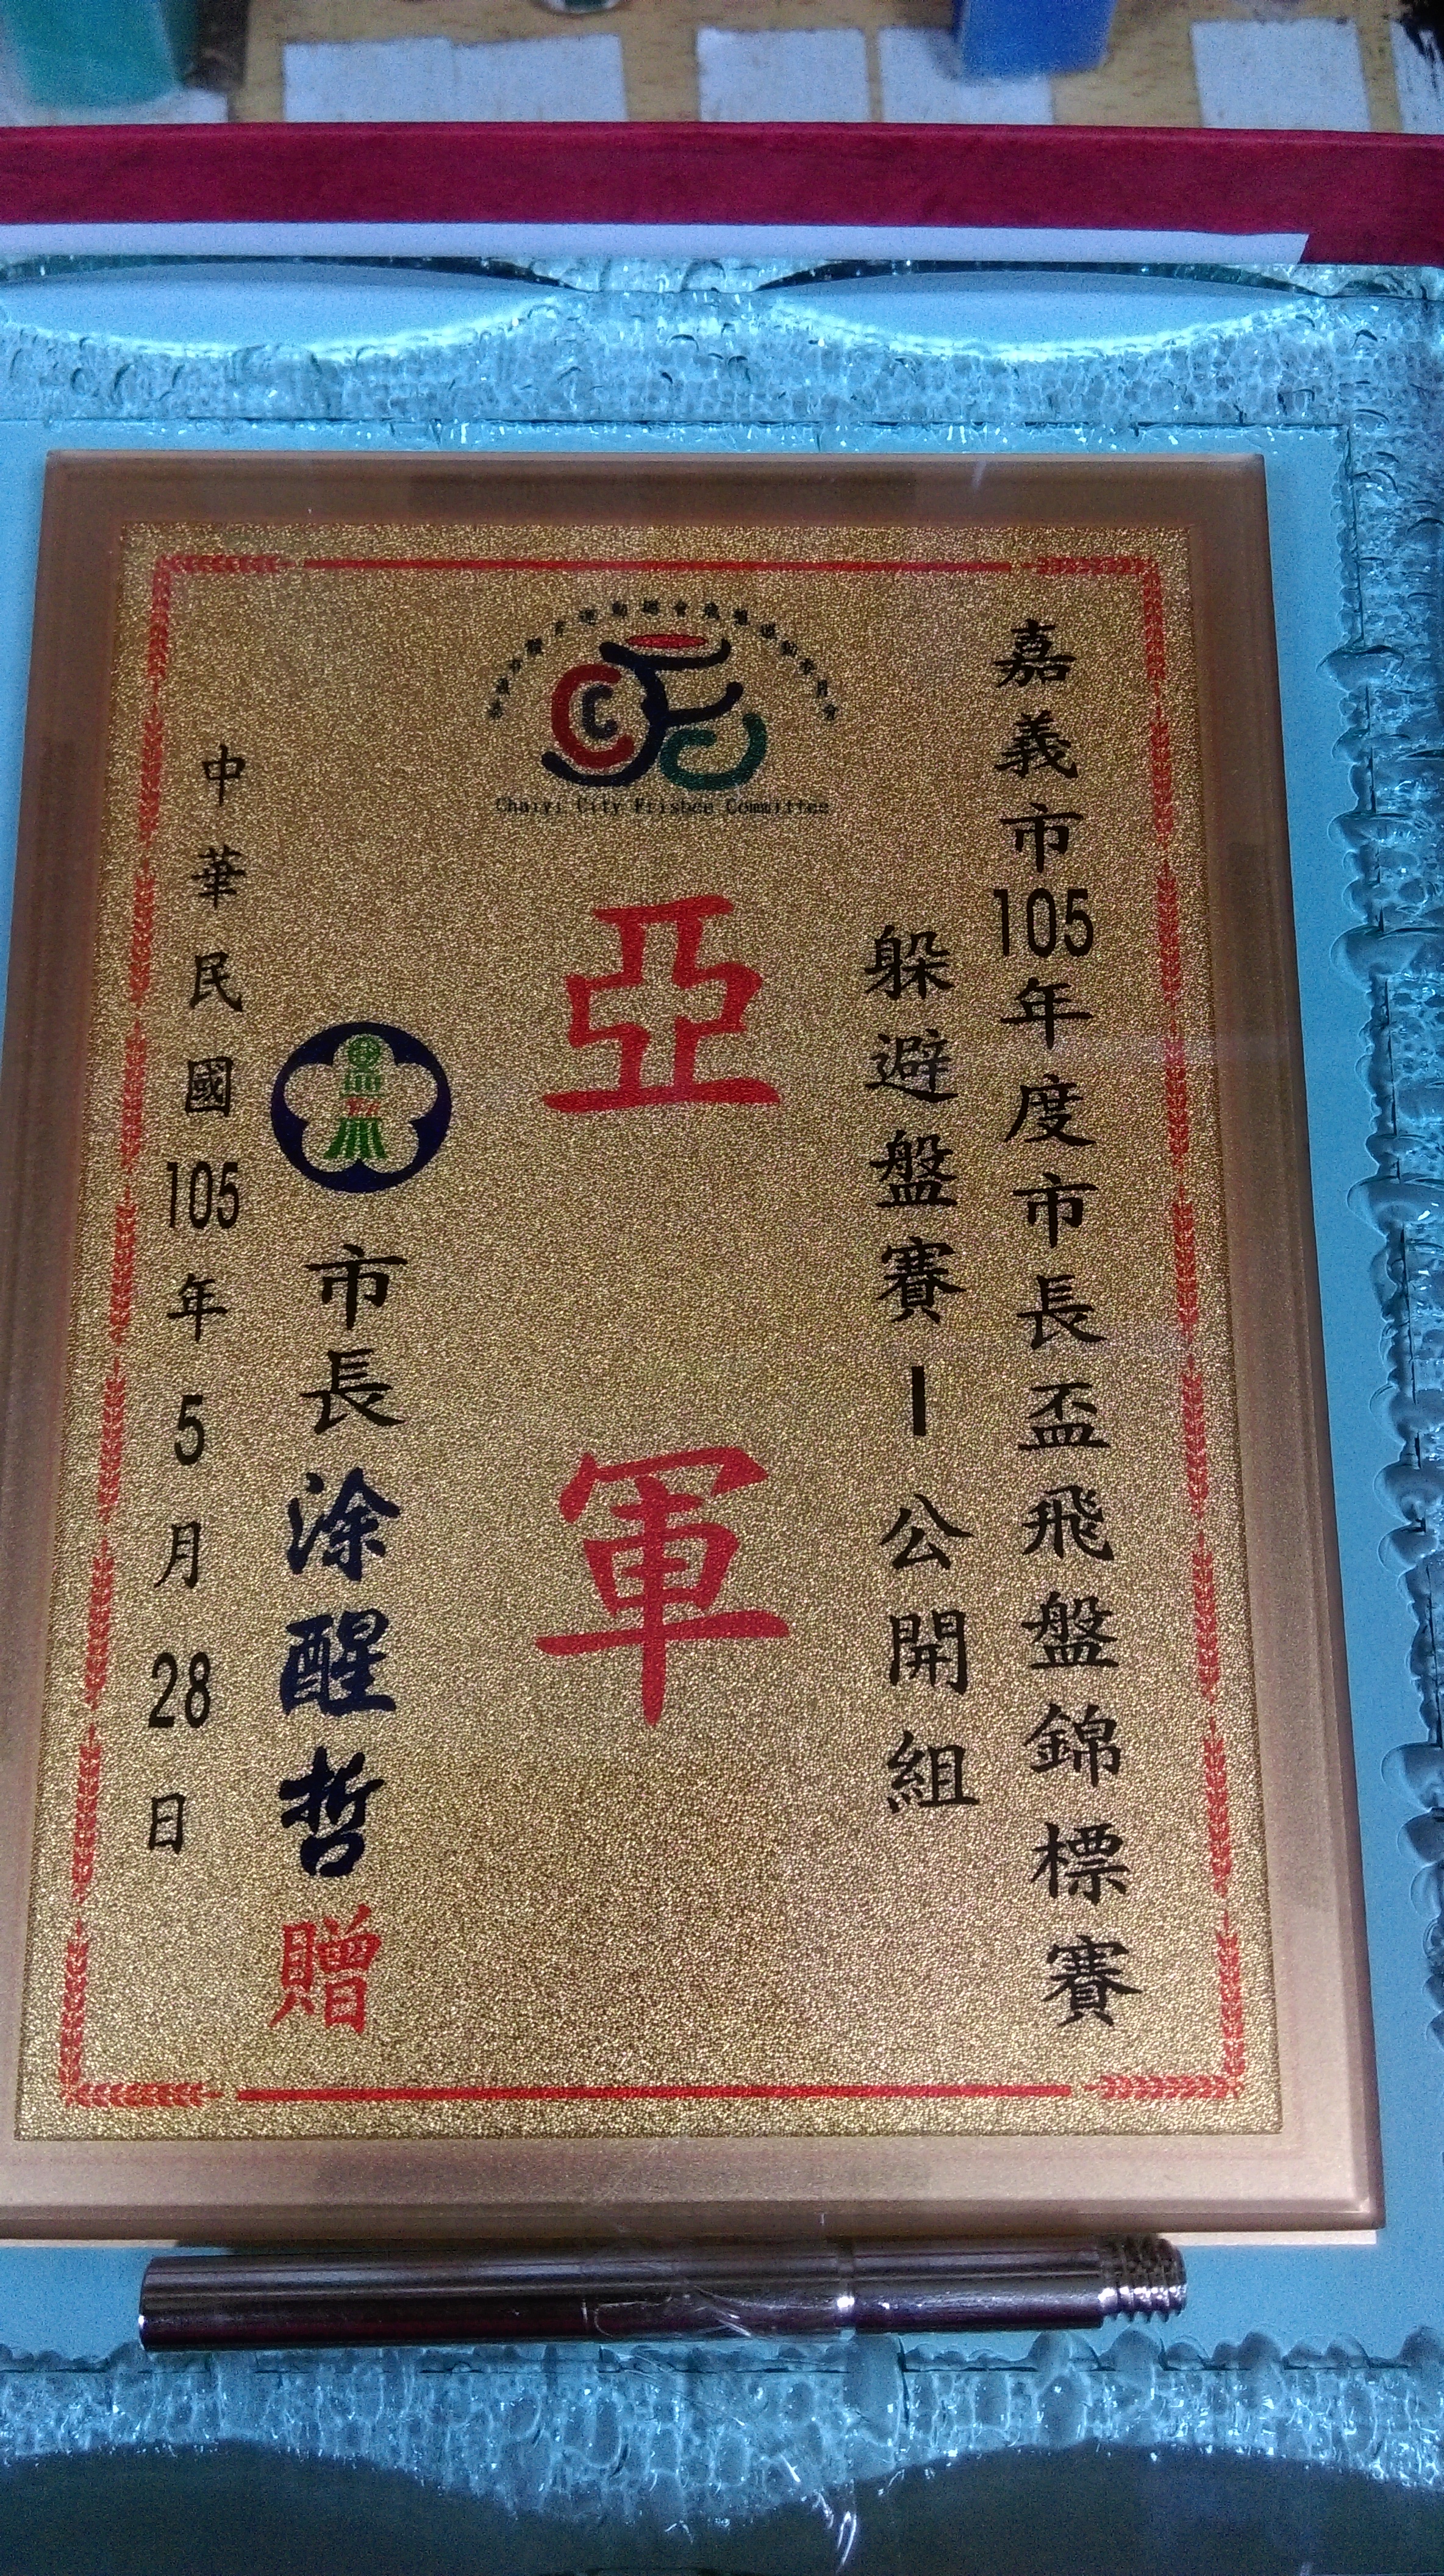 嘉義市105年度市長盃飛盤錦標賽
躲避盤賽-公開組
Chaiyi City Frisbee Committee
亞軍
市長涂醒哲贈
中華民國105年5月28日